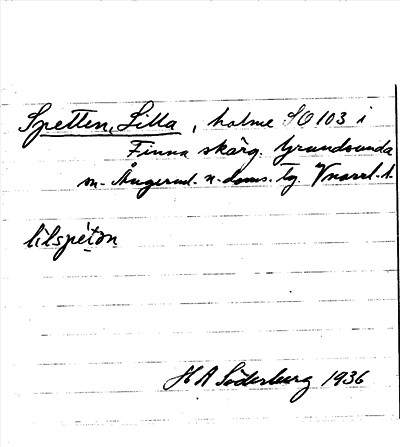 Spetten, Lilla, holme SO 103 i
Finna skärg. Grundsunda
sn. Ångerml. n. doms. tg. Vnorrl. l.
lilspeton
H A Söderburg 1936